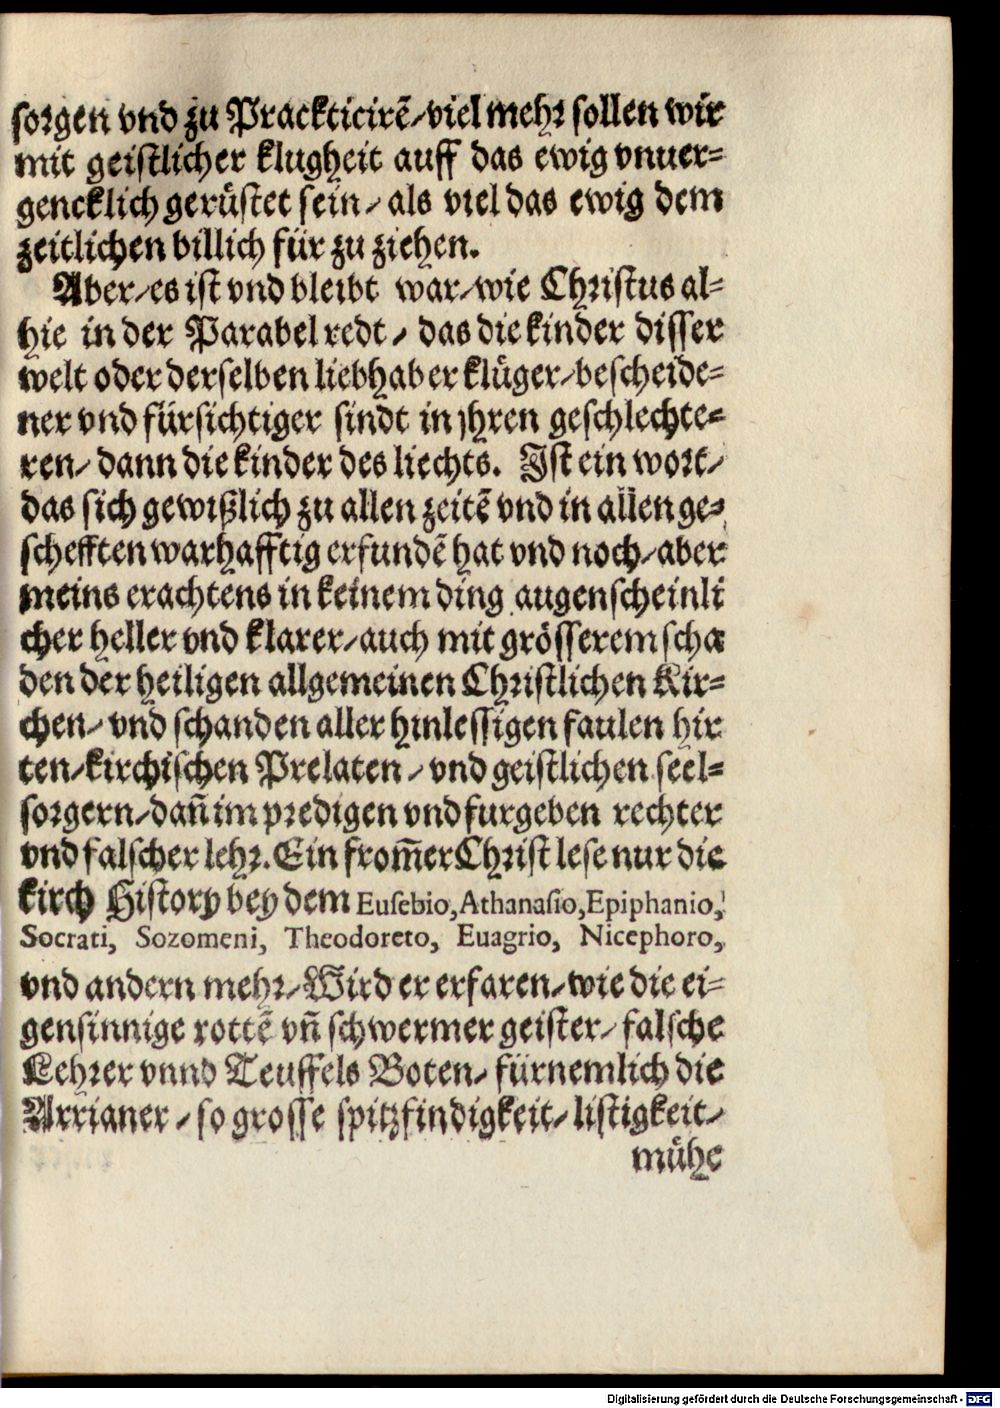 sorgen vnd zu Prackticirẽ/viel mehr sollen wir
mit geistlicher klugheit auff das ewig vnuer=
gencklich gerüstet sein/ als viel das ewig dem
zeitlichen billich für zu ziehen.
Aber/es ist vnd bleibt war/wie Christus al=
hie in der Parabel redt/ das die kinder disser
welt oder derselben liebhaber klüger/bescheide=
ner vnd fürsichtiger sindt in jhren geschlechte=
ren/ dann die kinder des liechts. Ist ein wort/
das sich gewißlich zu allen zeitẽ vnd in allen ge=
schefften warhafftig erfundẽ hat vnd noch/aber
meins erachtens in keinem ding augenscheinli
cher heller vnd klarer/auch mit grösserem scha
den der heiligen allgemeinen Christlichen Kir=
chen/ vnd schanden aller hinlessigen faulen hir
ten/kirchischen Prelaten/ vnd geistlichen seel=
sorgern/dañ im predigen vnd furgeben rechter
vnd falscher lehr. Ein from̃er Christ lese nur die
kirch History bey dem Eusebio, Athanasio, Epiphanio,
Socrati, Sozomeni, Theodoreto, Euagrio, Nicephoro,
vnd andern mehr/Wird er erfaren/wie die ei=
gensinnige rottẽ vñ schwermer geister/ falsche
Lehrer vnnd Teuffels Boten/ fürnemlich die
Arrianer/ so grosse spitzfindigkeit/listigkeit/
mühe
Digitalisierung gefördert durch die Deutsche Forschungsgemeinschaft - DFG